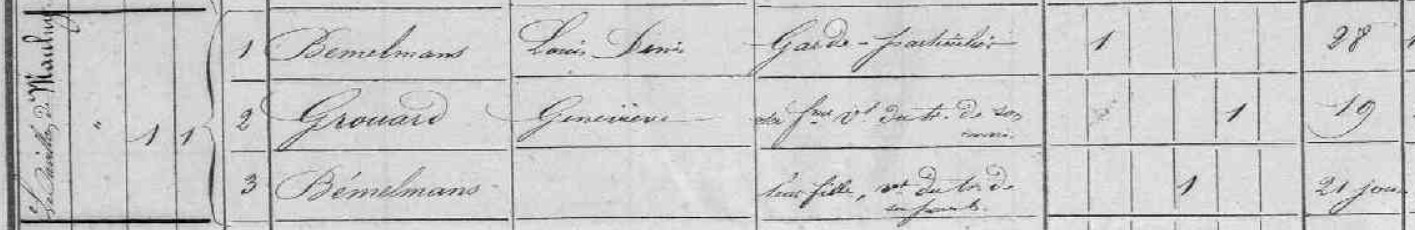 Le Pavillon de Maulny
" 1 1
1 Bemelmans Louis Denis Garde-particulier 1 28
2 Grouard Geneviève sa fme vt du tr. de son mari. 1 19
3 Bémelmans leur fille, vt du tr. de ses parents. 1 21 jours